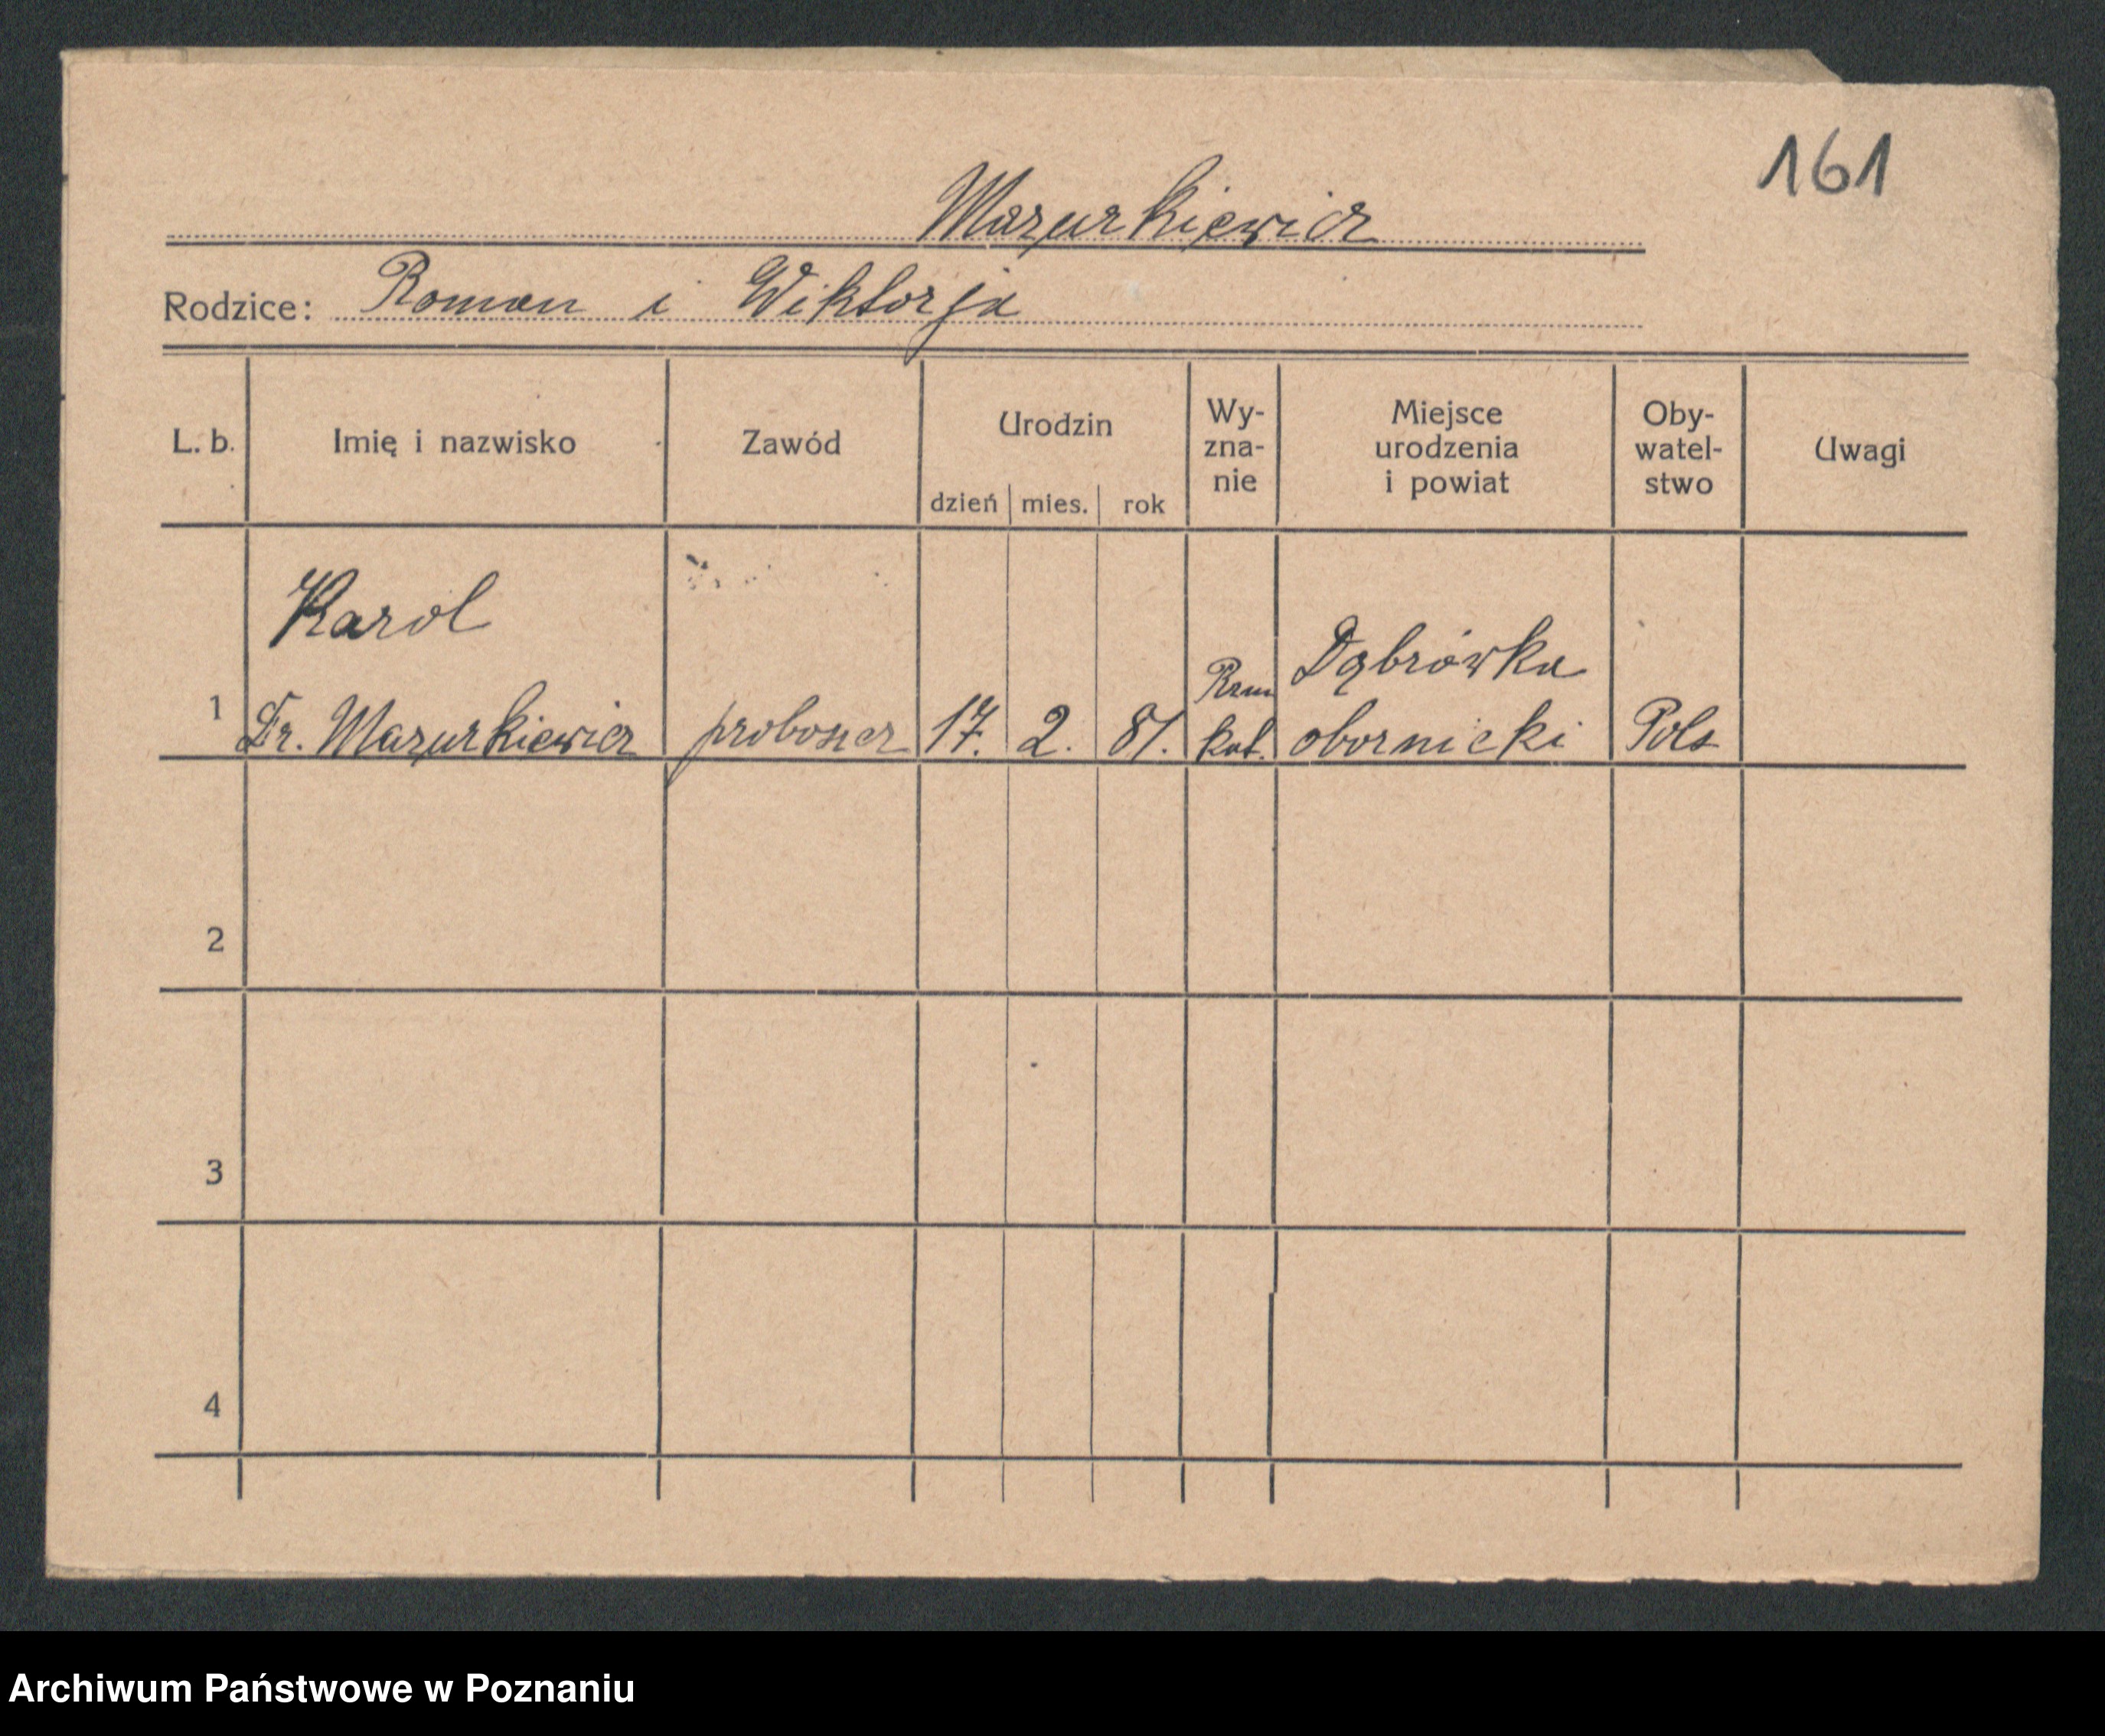 161
Mazurkiewicz
Rodzice: Roman i Wiktorja
L. b. Imię i nazwisko Zawód Urodzin dzień mies. rok Wy-zna-nie Miejsce urodzenia i powiat Oby-watel-stwo Uwagi
Karol
1 Dr. Mazurkiewicz proboszcz 17. 2. 81. Rzm kat. Dąbrówka obornicki Pols
2
3
4
Archiwum Państwowe w Poznaniu